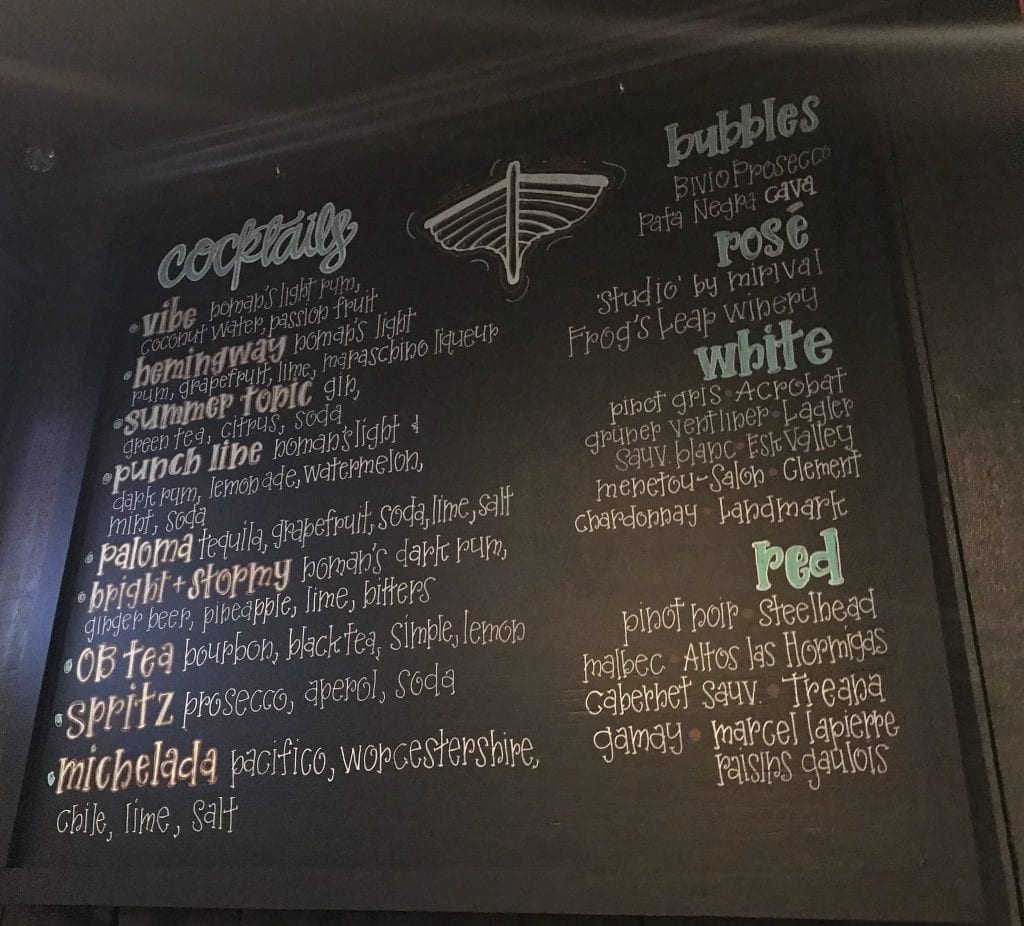 cocktails
vibe homan's light rum,
coconut water, passion fruit
hemingway homan's light
rum, grapefruit, lime, maraschino liqueur
summer topic gin,
green tea, citrus, soda
punch line homan's light &
dark rum, lemonade, watermelon,
mint, soda
paloma tequila, grapefruit, soda, lime, salt
bright + stormy homan's dark rum,
ginger beer, pineapple, lime, bitters
OB tea bourbon, black tea, simple, lemon
spritz prosecco, aperol, soda
michelada pacifico, worcestershire,
chile, lime, salt
bubbles
BIVIO Prosecco
Pata Negra cava
rosé
'studio' by mirival
Frog's Leap winery
white
pinot gris • Acrobat
gruner ventliner • Lagler
sauv. blanc • Esk Valley
menetou-Salon • Clement
chardonnay • Landmark
red
pinot noir • Steelhead
malbec • Altos las Hormigas
cabernet sauv. • Treana
gamay • marcel lapierre
raisins gaulois